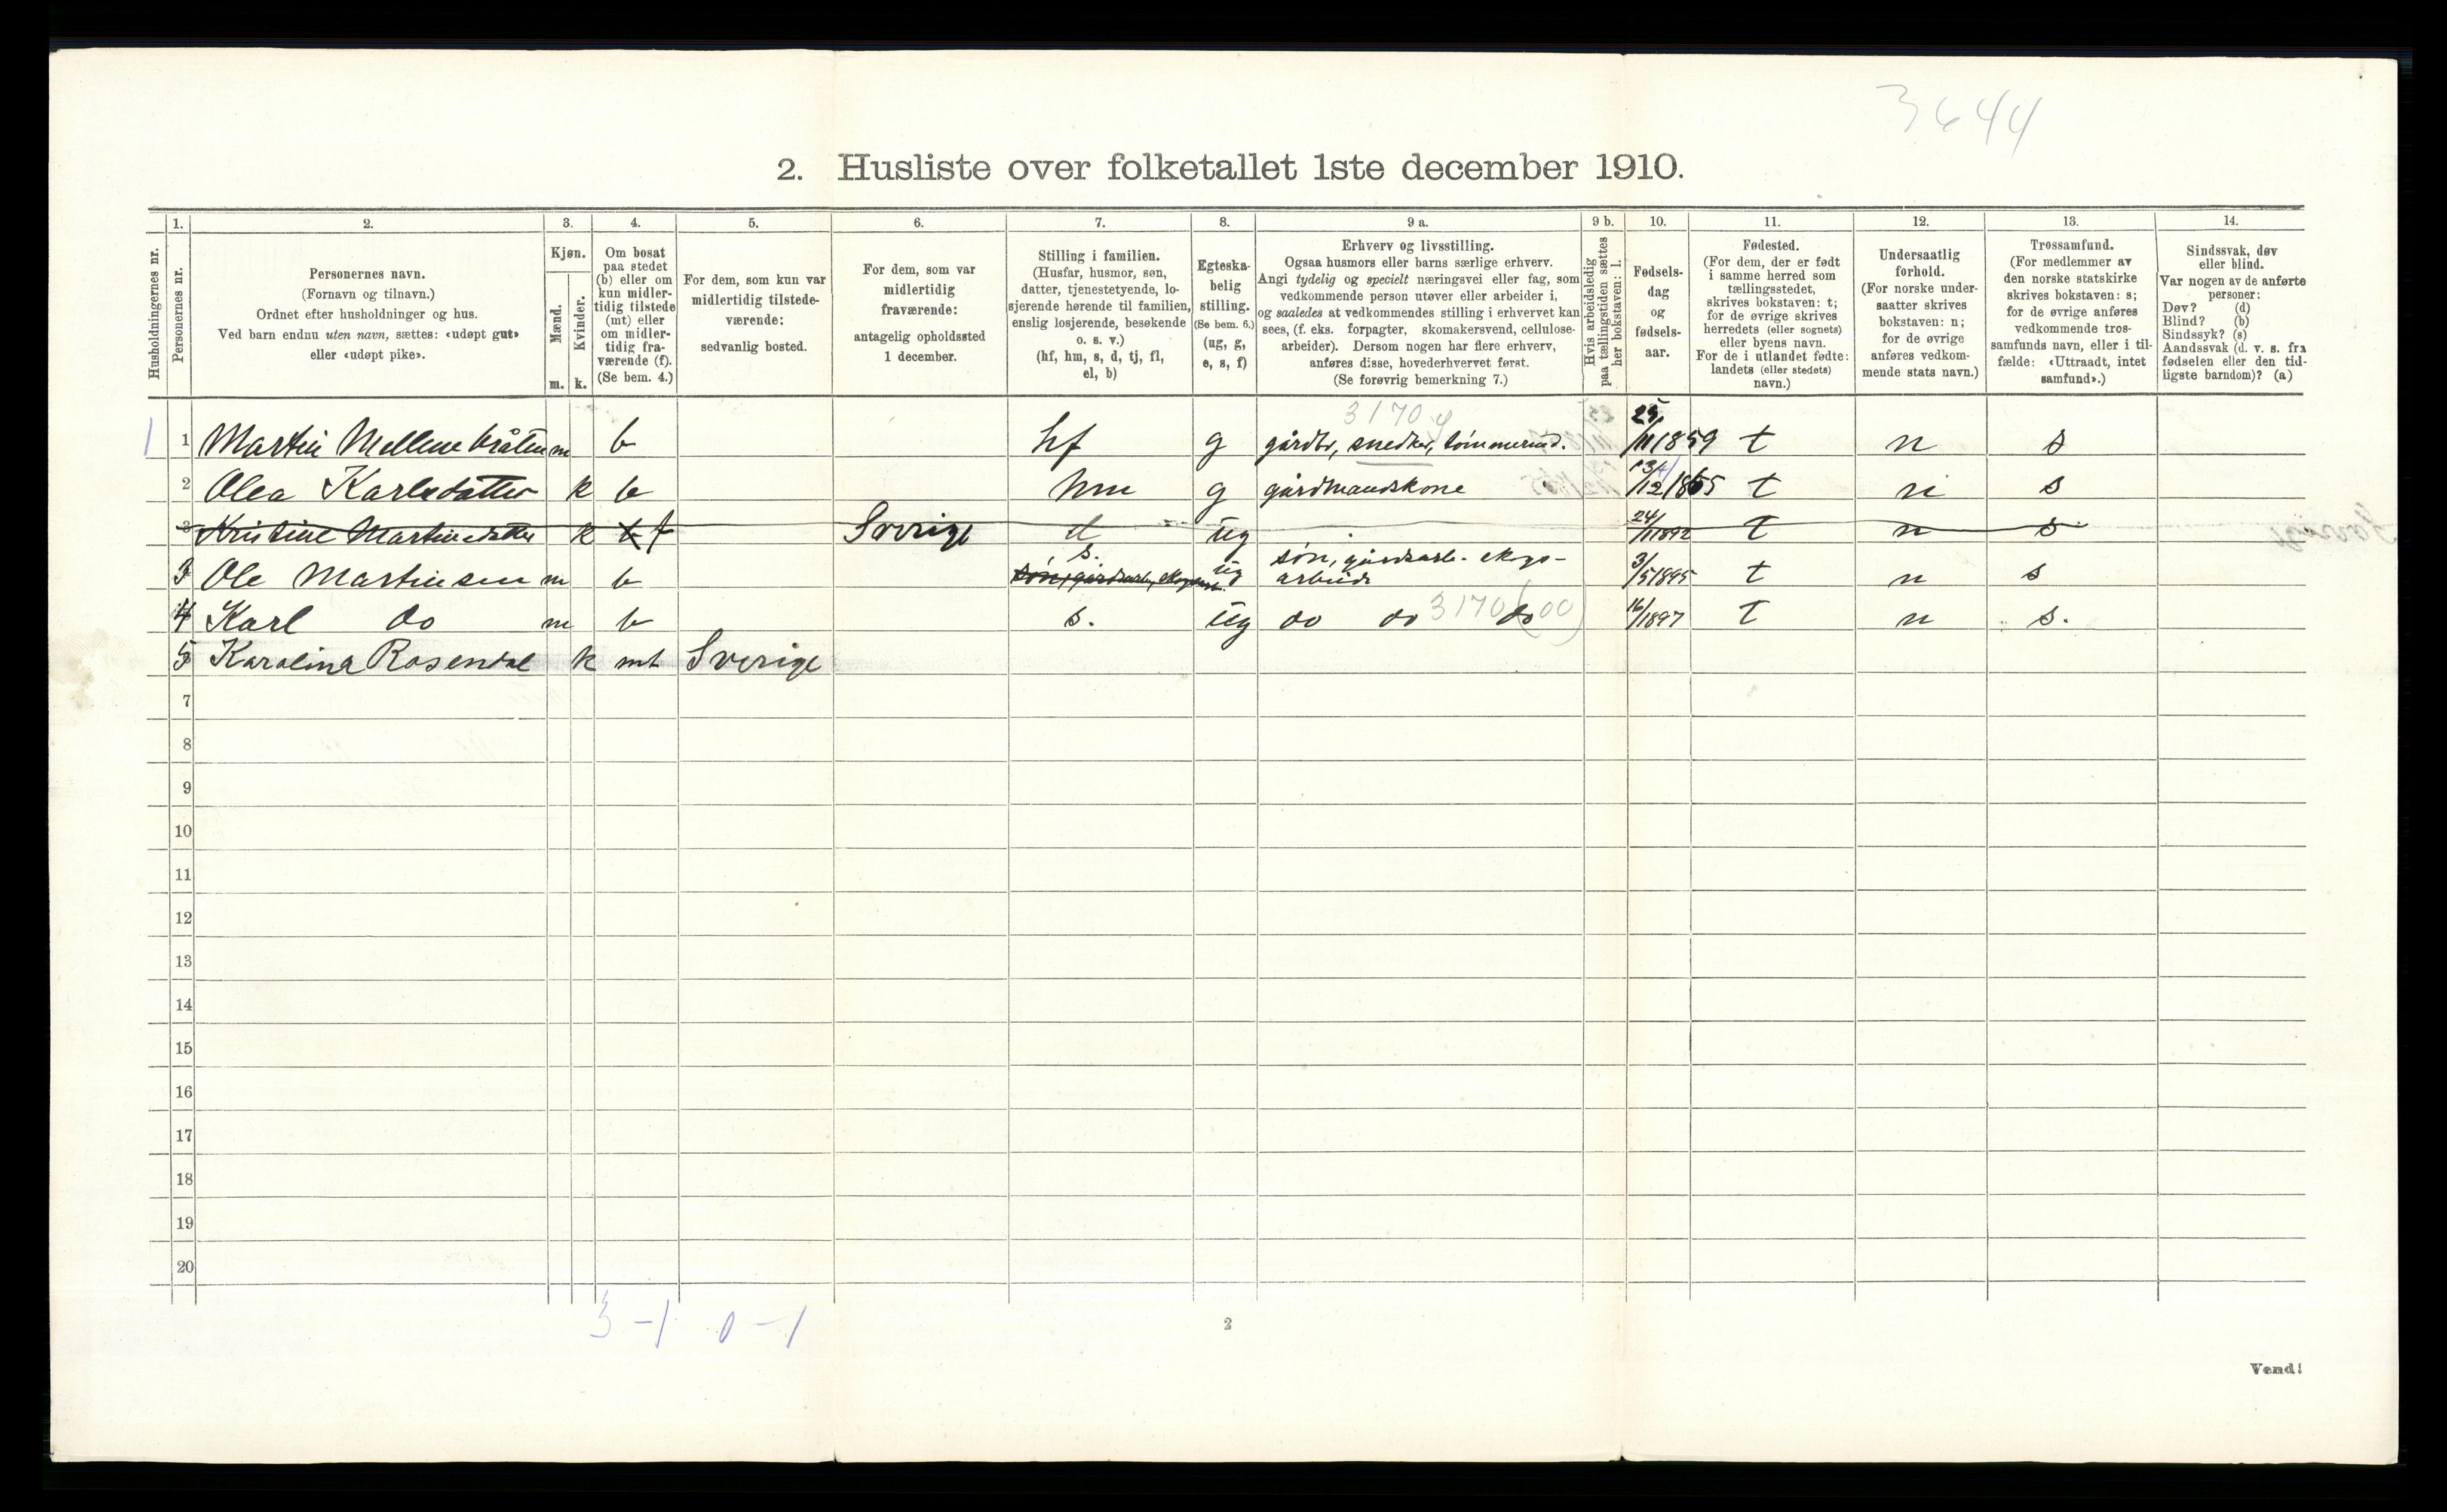 3644
2. Husliste over folketallet 1ste december 1910.
1. 2. 3. 4. 5. 6. 7. 8. 9 a. 9 b. 10. 11. 12. 13. 14.
Husholdningernes nr.
Personernes nr.
Personernes navn.
(Fornavn og tilnavn.)
Ordnet efter husholdninger og hus.
Ved barn endnu uten navn, sættes: «udøpt gut»
eller «udøpt pike».
Kjøn.
Mænd.
Kvinder.
m. k.
Om bosat
paa stedet
(b) eller om
kun midler-
tidig tilstede
(mt) eller
om midler-
tidig fra-
værende (f).
(Se bem. 4.)
For dem, som kun var
midlertidig tilstede-
værende:
sedvanlig bosted.
For dem, som var
midlertidig
fraværende:
antagelig opholdssted
1 december.
Stilling i familien.
(Husfar, husmor, søn,
datter, tjenestetyende, lo-
sjerende hørende til familien,
enslig losjerende, besøkende
o. s. v.)
(hf, hm, s, d, tj, fl,
el, b)
Egteska-
belig
stilling.
(Se bem. 6.)
(ug, g,
e, s, f)
Erhverv og livsstilling.
Ogsaa husmors eller barns særlige erhverv.
Angi tydelig og specielt næringsvei eller fag, som
vedkommende person utøver eller arbeider i,
og saaledes at vedkommendes stilling i erhvervet kan
sees, (f. eks. forpagter, skomakersvend, cellulose-
arbeider). Dersom nogen har flere erhverv,
anføres disse, hovederhvervet først.
(Se forøvrig bemerkning 7.)
Hvis arbeidsledig
paa tællingstiden sættes
her bokstaven: l.
Fødsels-
dag
og
fødsels-
aar.
Fødested.
(For dem, der er født
i samme herred som
tællingsstedet,
skrives bokstaven: t;
for de øvrige skrives
herredets (eller sognets)
eller byens navn.
For de i utlandet fødte:
landets (eller stedets)
navn.)
Undersaatlig
forhold.
(For norske under-
saatter skrives
bokstaven: n;
for de øvrige
anføres vedkom-
mende stats navn.)
Trossamfund.
(For medlemmer av
den norske statskirke
skrives bokstaven: s;
for de øvrige anføres
vedkommende tros-
samfunds navn, eller i til-
fælde: «Uttraadt, intet
samfund».)
Sindssvak, døv
eller blind.
Var nogen av de anførte
personer:
Døv? (d)
Blind? (b)
Sindssyk? (s)
Aandssvak (d. v. s. fra
fødselen eller den tid-
ligste barndom)? (a)
3170 g
1 1 Martin Mellembråten m b hf g gårdbr, snedker, tømmermd. 25/11 1859 t n s
2 Olea Karlsdatter k b hm g gårdmandskone 13/12 1865 t n s
3 Kristine Martinsdatter k f Sverige d ug 24/11 1892 t n s
3 Ole Martinsen m b s. ug søn, gårdsarb. skogs-
arbeide 3/5 1895 t n s
4 Karl do m b s. ug do do do 3170 (00) 16/1 1897 t n s.
5 Karolina Rosendal k mt Sverige
7
8
9
10
11
12
13
14
15
16
17
18
19
20
3-1 0-1
2
Vend!